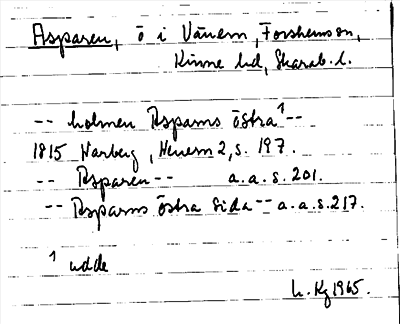 Asparen, ö i Vänern, Forshems sn,
Kinne hd, Skarab. l.
-- holmen Asparns östra¹ --
1815 Warberg, Wenern 2, s. 197.
-- Asparen -- a.a.s. 201.
-- Asparns östra sida -- a.a.s. 217.
¹ udde
Kg 1965.